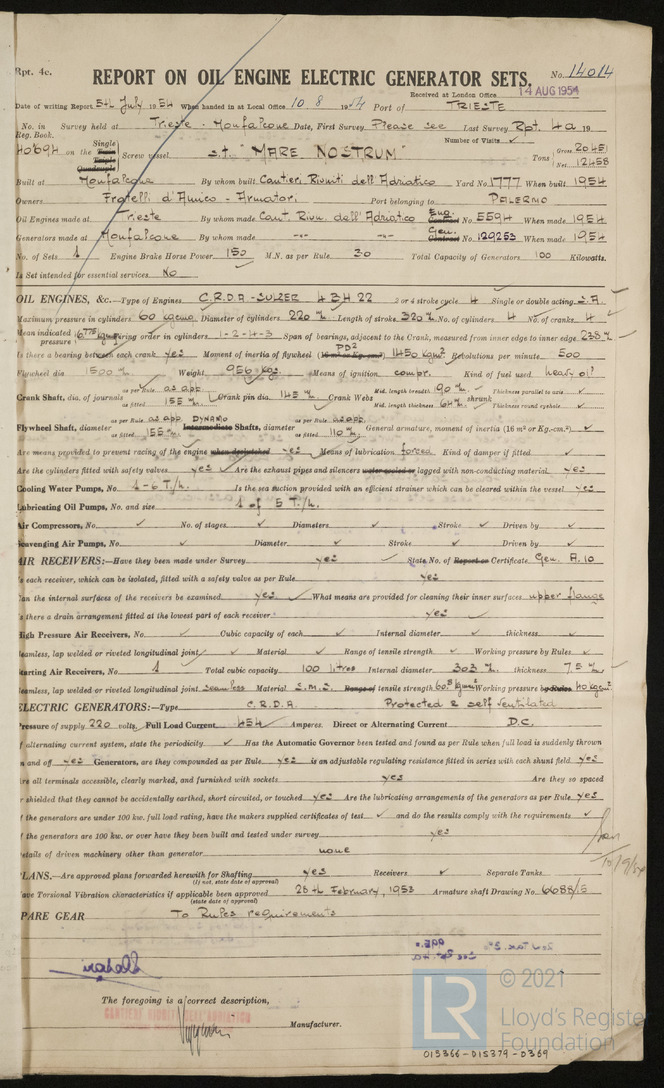 Rpt. 4c.
REPORT ON OIL ENGINE ELECTRIC GENERATOR SETS.
No. 14014
Received at London Office 14 AUG 1954
Date of writing Report 5th July 1954 When handed in at Local Office 10 8 1954 Port of TRIESTE
No. in Reg. Book. Survey held at Trieste - Monfalcone Date, First Survey Please see Last Survey Rpt. 4a 19
Number of Visits
40694 on the Single Twin Triple Quadruple Screw vessel s.t. "MARE NOSTRUM" Tons Gross 20451 Net 12458
Built at Monfalcone By whom built Cantieri Riuniti dell'Adriatico Yard No. 1777 When built 1954
Owners Fratelli d'Amico - Armatori Port belonging to PALERMO
Oil Engines made at Trieste By whom made Cant. Riun. dell'Adriatico Eng. Contract No. 5594 When made 1954
Generators made at Monfalcone By whom made -"- -"- Gen. Contract No. 129253 When made 1954
No. of Sets 1 Engine Brake Horse Power 150 M.N. as per Rule 30 Total Capacity of Generators 100 Kilowatts.
Is Set intended for essential services No
OIL ENGINES, &c.—Type of Engines C.R.D.A - SULZER 4 BH 22 2 or 4 stroke cycle 4 Single or double acting S.A.
Maximum pressure in cylinders 60 kg/cm² Diameter of cylinders 220 m/m Length of stroke 320 m/m No. of cylinders 4 No. of cranks 4
Mean indicated pressure Firing order in cylinders 1-2-4-3 Span of bearings, adjacent to the Crank, measured from inner edge to inner edge 238 m/m
Is there a bearing between each crank yes Moment of inertia of flywheel PD² 1450 kgm² Revolutions per minute 500
Flywheel dia 1500 m/m Weight 956 kgs. Means of ignition compr. Kind of fuel used heavy oil
Crank Shaft, dia. of journals as per Rule as app. as fitted 155 m/m Crank pin dia. 145 m/m Crank Webs Mid. length breadth 190 m/m Mid. length thickness 64 m/m shrunk Thickness parallel to axis Thickness round eyehole
Flywheel Shaft, diameter as per Rule as app. as fitted 155 m/m DYNAMO Intermediate Shafts, diameter as per Rule as app. as fitted 110 m/m General armature, moment of inertia (16 m² or Kg.-cm.²)
Are means provided to prevent racing of the engine when declutched yes Means of lubrication forced Kind of damper if fitted
Are the cylinders fitted with safety valves yes Are the exhaust pipes and silencers water cooled or lagged with non-conducting material yes
Cooling Water Pumps, No. 1-6 T./h. Is the sea suction provided with an efficient strainer which can be cleared within the vessel yes
Lubricating Oil Pumps, No. and size 1 of 5 T./h.
Air Compressors, No. No. of stages Diameters Stroke Driven by
Scavenging Air Pumps, No. Diameter Stroke Driven by
AIR RECEIVERS:—Have they been made under Survey yes State No. of Report or Certificate Gen. A.10
Is each receiver, which can be isolated, fitted with a safety valve as per Rule yes
Can the internal surfaces of the receivers be examined yes What means are provided for cleaning their inner surfaces upper flange
Is there a drain arrangement fitted at the lowest part of each receiver yes
High Pressure Air Receivers, No. Cubic capacity of each Internal diameter thickness
Seamless, lap welded or riveted longitudinal joint Material Range of tensile strength Working pressure by Rules
Starting Air Receivers, No. 1 Total cubic capacity 100 litres Internal diameter 303 m/m thickness 7.5 m/m
Seamless, lap welded or riveted longitudinal joint seamless Material S.M.S. Range of tensile strength Working pressure by Rules 40 kg/cm²
ELECTRIC GENERATORS:—Type C.R.D.A. Protected & self Ventilated
Pressure of supply 220 volts. Full Load Current 454 Amperes. Direct or Alternating Current D.C.
If alternating current system, state the periodicity Has the Automatic Governor been tested and found as per Rule when full load is suddenly thrown
on and off yes Generators, are they compounded as per Rule yes is an adjustable regulating resistance fitted in series with each shunt field yes
Are all terminals accessible, clearly marked, and furnished with sockets yes Are they so spaced
or shielded that they cannot be accidentally earthed, short circuited, or touched yes Are the lubricating arrangements of the generators as per Rule yes
If the generators are under 100 kw. full load rating, have the makers supplied certificates of test and do the results comply with the requirements
If the generators are 100 kw. or over have they been built and tested under survey yes
Details of driven machinery other than generator none
PLANS.—Are approved plans forwarded herewith for Shafting yes Receivers Separate Tanks
(If not, state date of approval)
Have Torsional Vibration characteristics if applicable been approved 28th February, 1953 Armature shaft Drawing No. 6688/5
(state date of approval)
SPARE GEAR To Rules requirements
The foregoing is a correct description,
CANTIERI RIUNITI DELL'ADRIATICO
Manufacturer.
LR
© 2021
Lloyd's Register
Foundation
015366-015379-0369